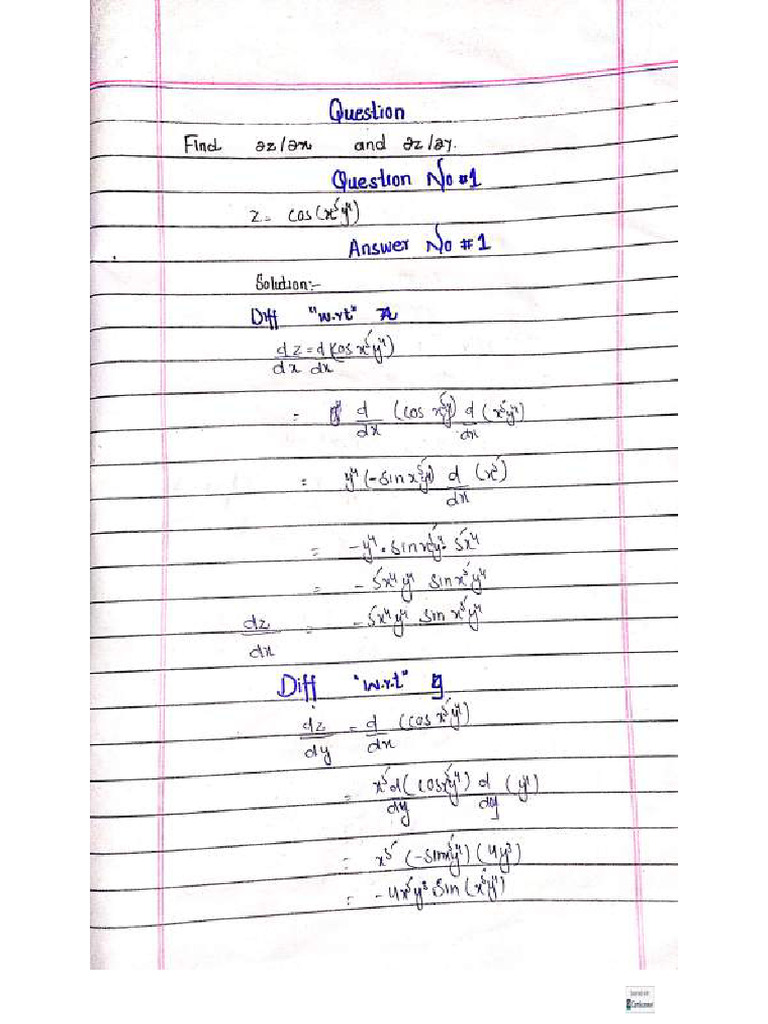 Question
Find ∂z/∂x and ∂z/∂y.
Question No #1
z = cos(x⁵y⁴)
Answer No #1
Solution:-
Diff "w.r.t" x
dz/dx = d/dx (cos x⁵y⁴)
= d/dx (cos x⁵y⁴) d/dx (x⁵y⁴)
= y⁴(-sin x⁵y⁴) d/dx (x⁵)
= -y⁴. sin x⁵y⁴. 5x⁴
= -5x⁴y⁴ sin x⁵y⁴
dz/dx = -5x⁴y⁴ sin x⁵y⁴
Diff "w.r.t" y
dz/dy = d/dx (cos x⁵y⁴)
= x⁵ d/dy (cos x⁵y⁴) d/dy (y⁴)
= x⁵ (-sin x⁵y⁴) (4y³)
= -4x⁵y³ sin (x⁵y⁴)
CamScanner